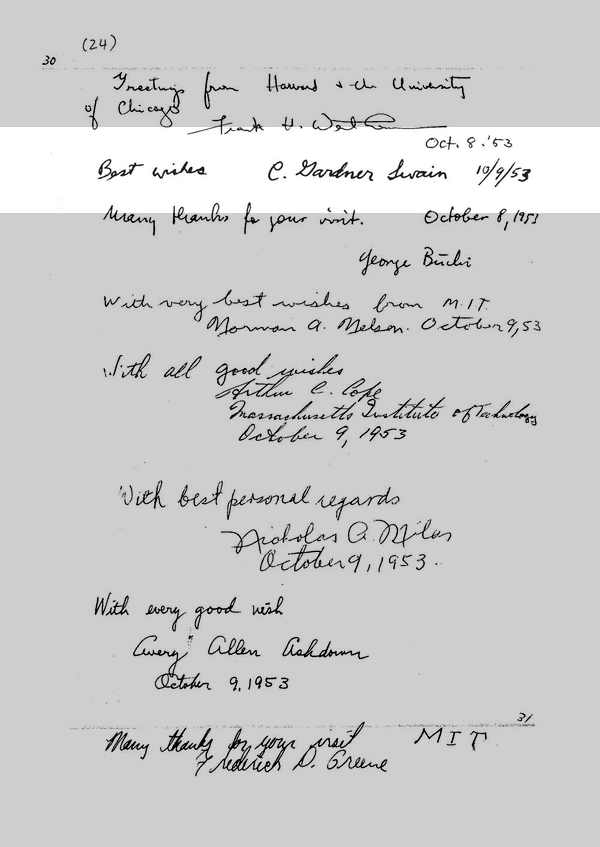 (24)
30
Greetings from Harvard & the University
of Chicago
Frank H. Westheimer
Oct. 8.'53
Best wishes C. Gardner Swain 10/9/53
Many thanks for your visit. October 8, 1953
George Büchi
With very best wishes from M.I.T.
Norman A. Nelson. October 9, 53
With all good wishes
Arthur C. Cope
Massachusetts Institute of Technology
October 9, 1953
With best personal regards
Nicholas A. Milas
October 9, 1953.
With every good wish
Avery Allen Ashdown
October 9, 1953
31
Many thanks for your visit MIT
Frederick D. Greene